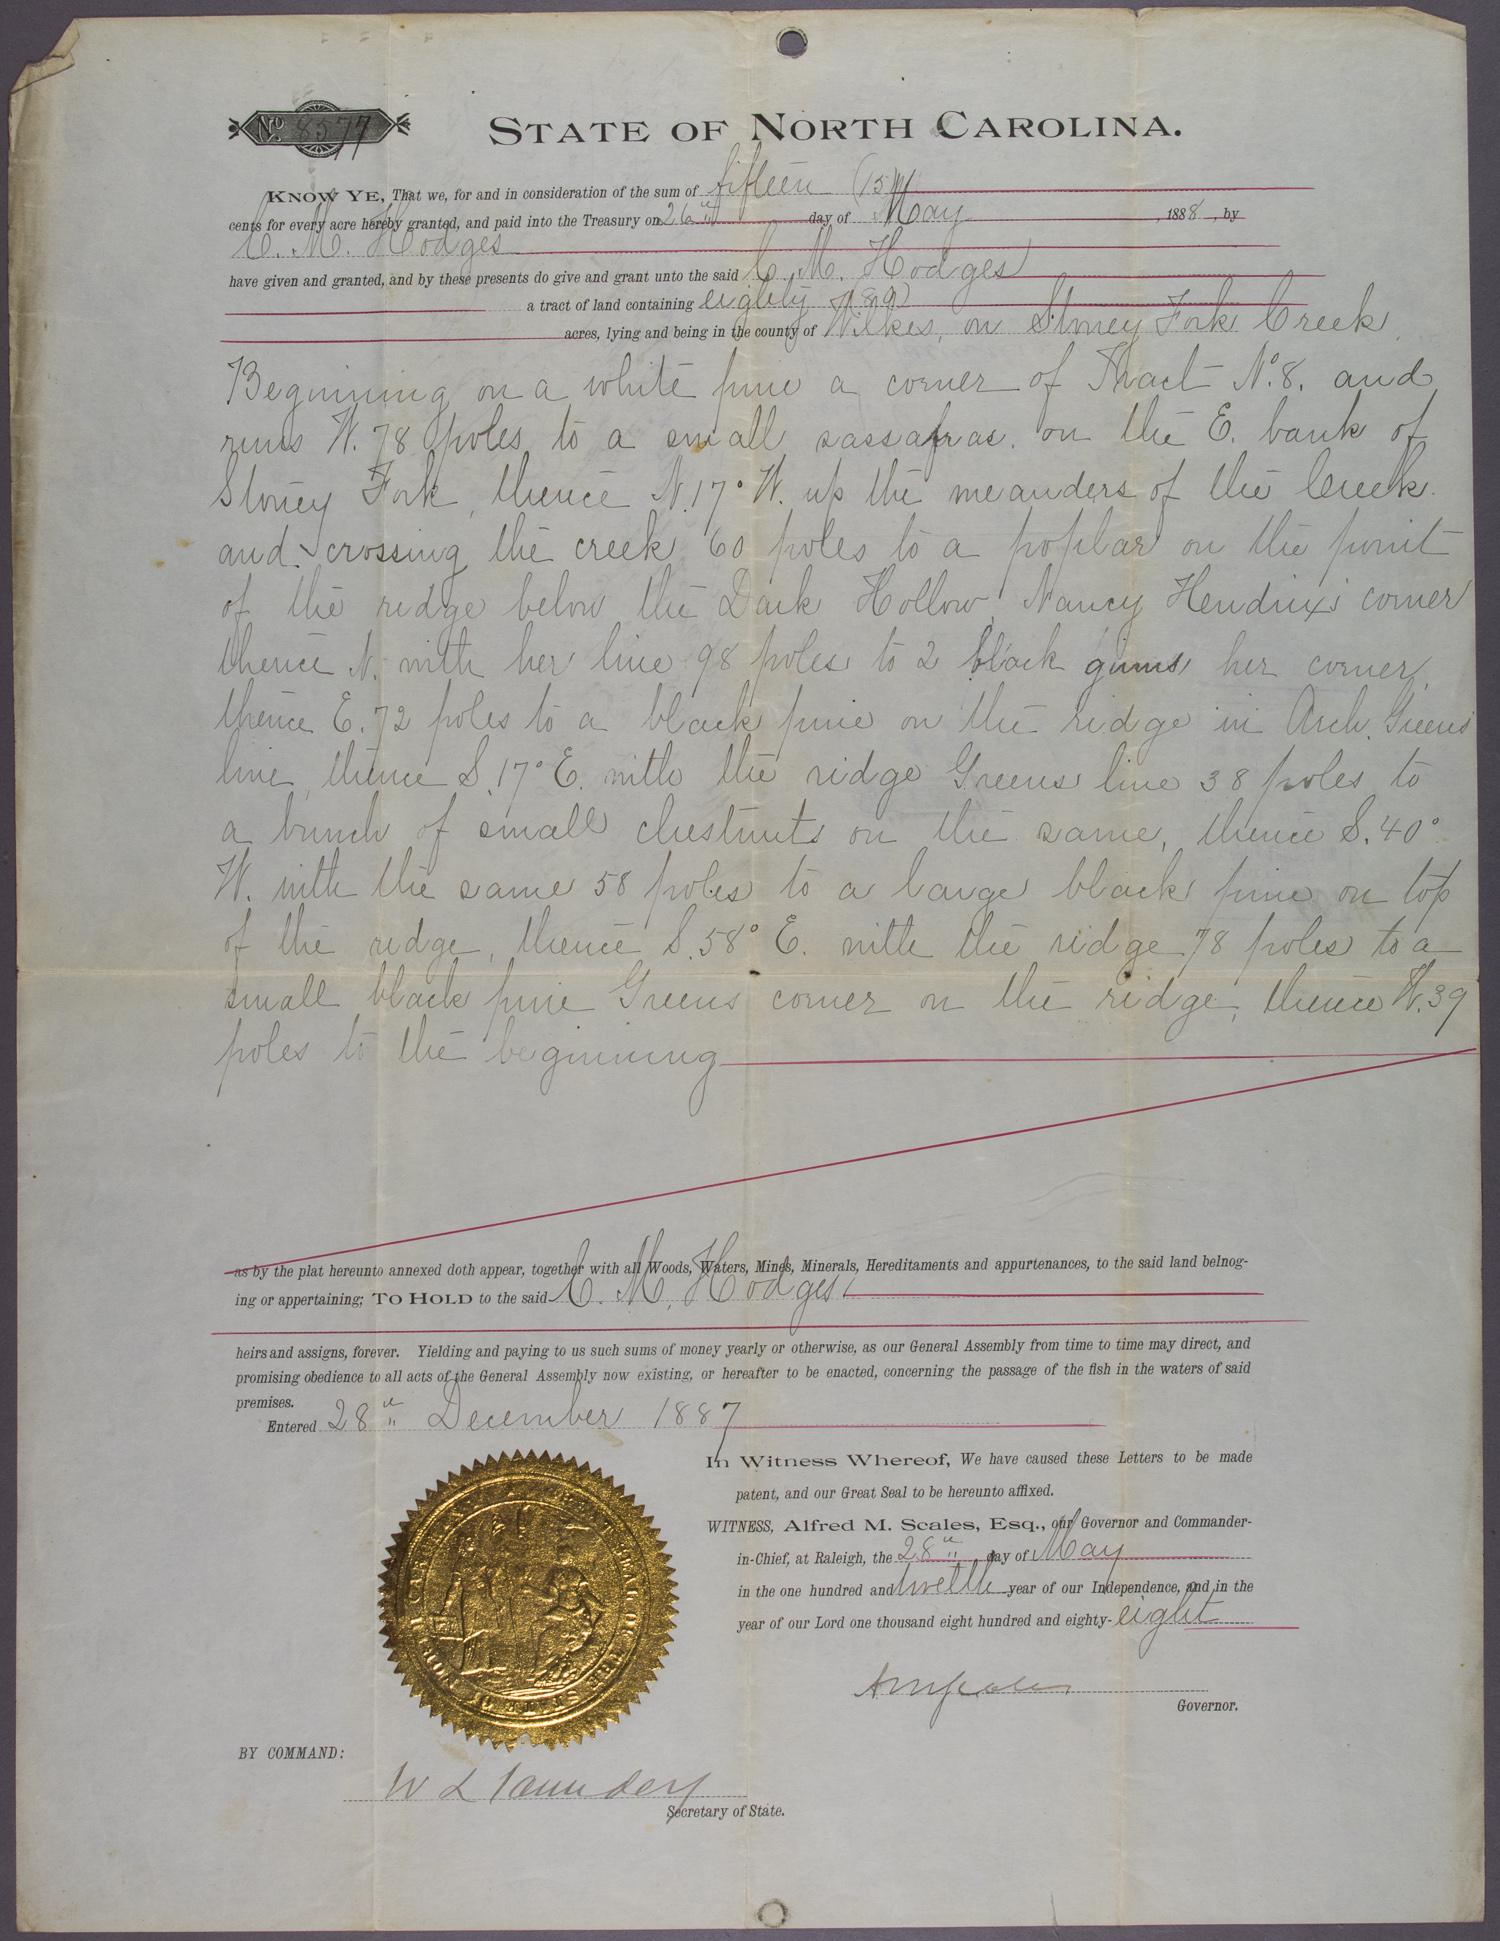 No 8577
STATE OF NORTH CAROLINA.
KNOW YE, That we, for and in consideration of the sum of fifteen (15)
cents for every acre hereby granted, and paid into the Treasury on 26th day of May, 1888, by
C. M. Hodges
have given and granted, and by these presents do give and grant unto the said C. M. Hodges
a tract of land containing eighty (80)
acres, lying and being in the county of Wilkes, on Stoney Fork Creek
Beginning on a white pine a corner of Tract No. 8. and
runs W. 78 poles to a small sassafras. on the E. bank of
Stoney Fork, thence N. 17° W. up the meanders of the Creek.
and crossing the creek 60 poles to a poplar on the point
of the ridge below the Dark Hollow, Nancy Hendrix's corner
thence N. with her line 98 poles to 2 black gums her corner,
thence E. 72 poles to a black pine on the ridge in Arch. Greens
line, thence S. 17° E. with the ridge Greens line 38 poles to
a bunch of small chestnuts on the same, thence S. 40°
W. with the same 58 poles to a large black pine on top
of the ridge, thence S. 58° E. with the ridge 78 poles to a
small black pine Greens corner on the ridge, thence W. 39
poles to the beginning
as by the plat hereunto annexed doth appear, together with all Woods, Waters, Mines, Minerals, Hereditaments and appurtenances, to the said land belnog-
ing or appertaining; TO HOLD to the said C. M. Hodges
heirs and assigns, forever. Yielding and paying to us such sums of money yearly or otherwise, as our General Assembly from time to time may direct, and
promising obedience to all acts of the General Assembly now existing, or hereafter to be enacted, concerning the passage of the fish in the waters of said
premises.
Entered 28th December 1887
In Witness Whereof, We have caused these Letters to be made
patent, and our Great Seal to be hereunto affixed.
WITNESS, Alfred M. Scales, Esq., our Governor and Commander-
in-Chief, at Raleigh, the 28th day of May
in the one hundred and twelth year of our Independence, and in the
year of our Lord one thousand eight hundred and eighty-eight
THE GREAT SEAL OF THE STATE OF NORTH CAROLINA
A M Scales
Governor.
BY COMMAND:
W L Saunders
Secretary of State.